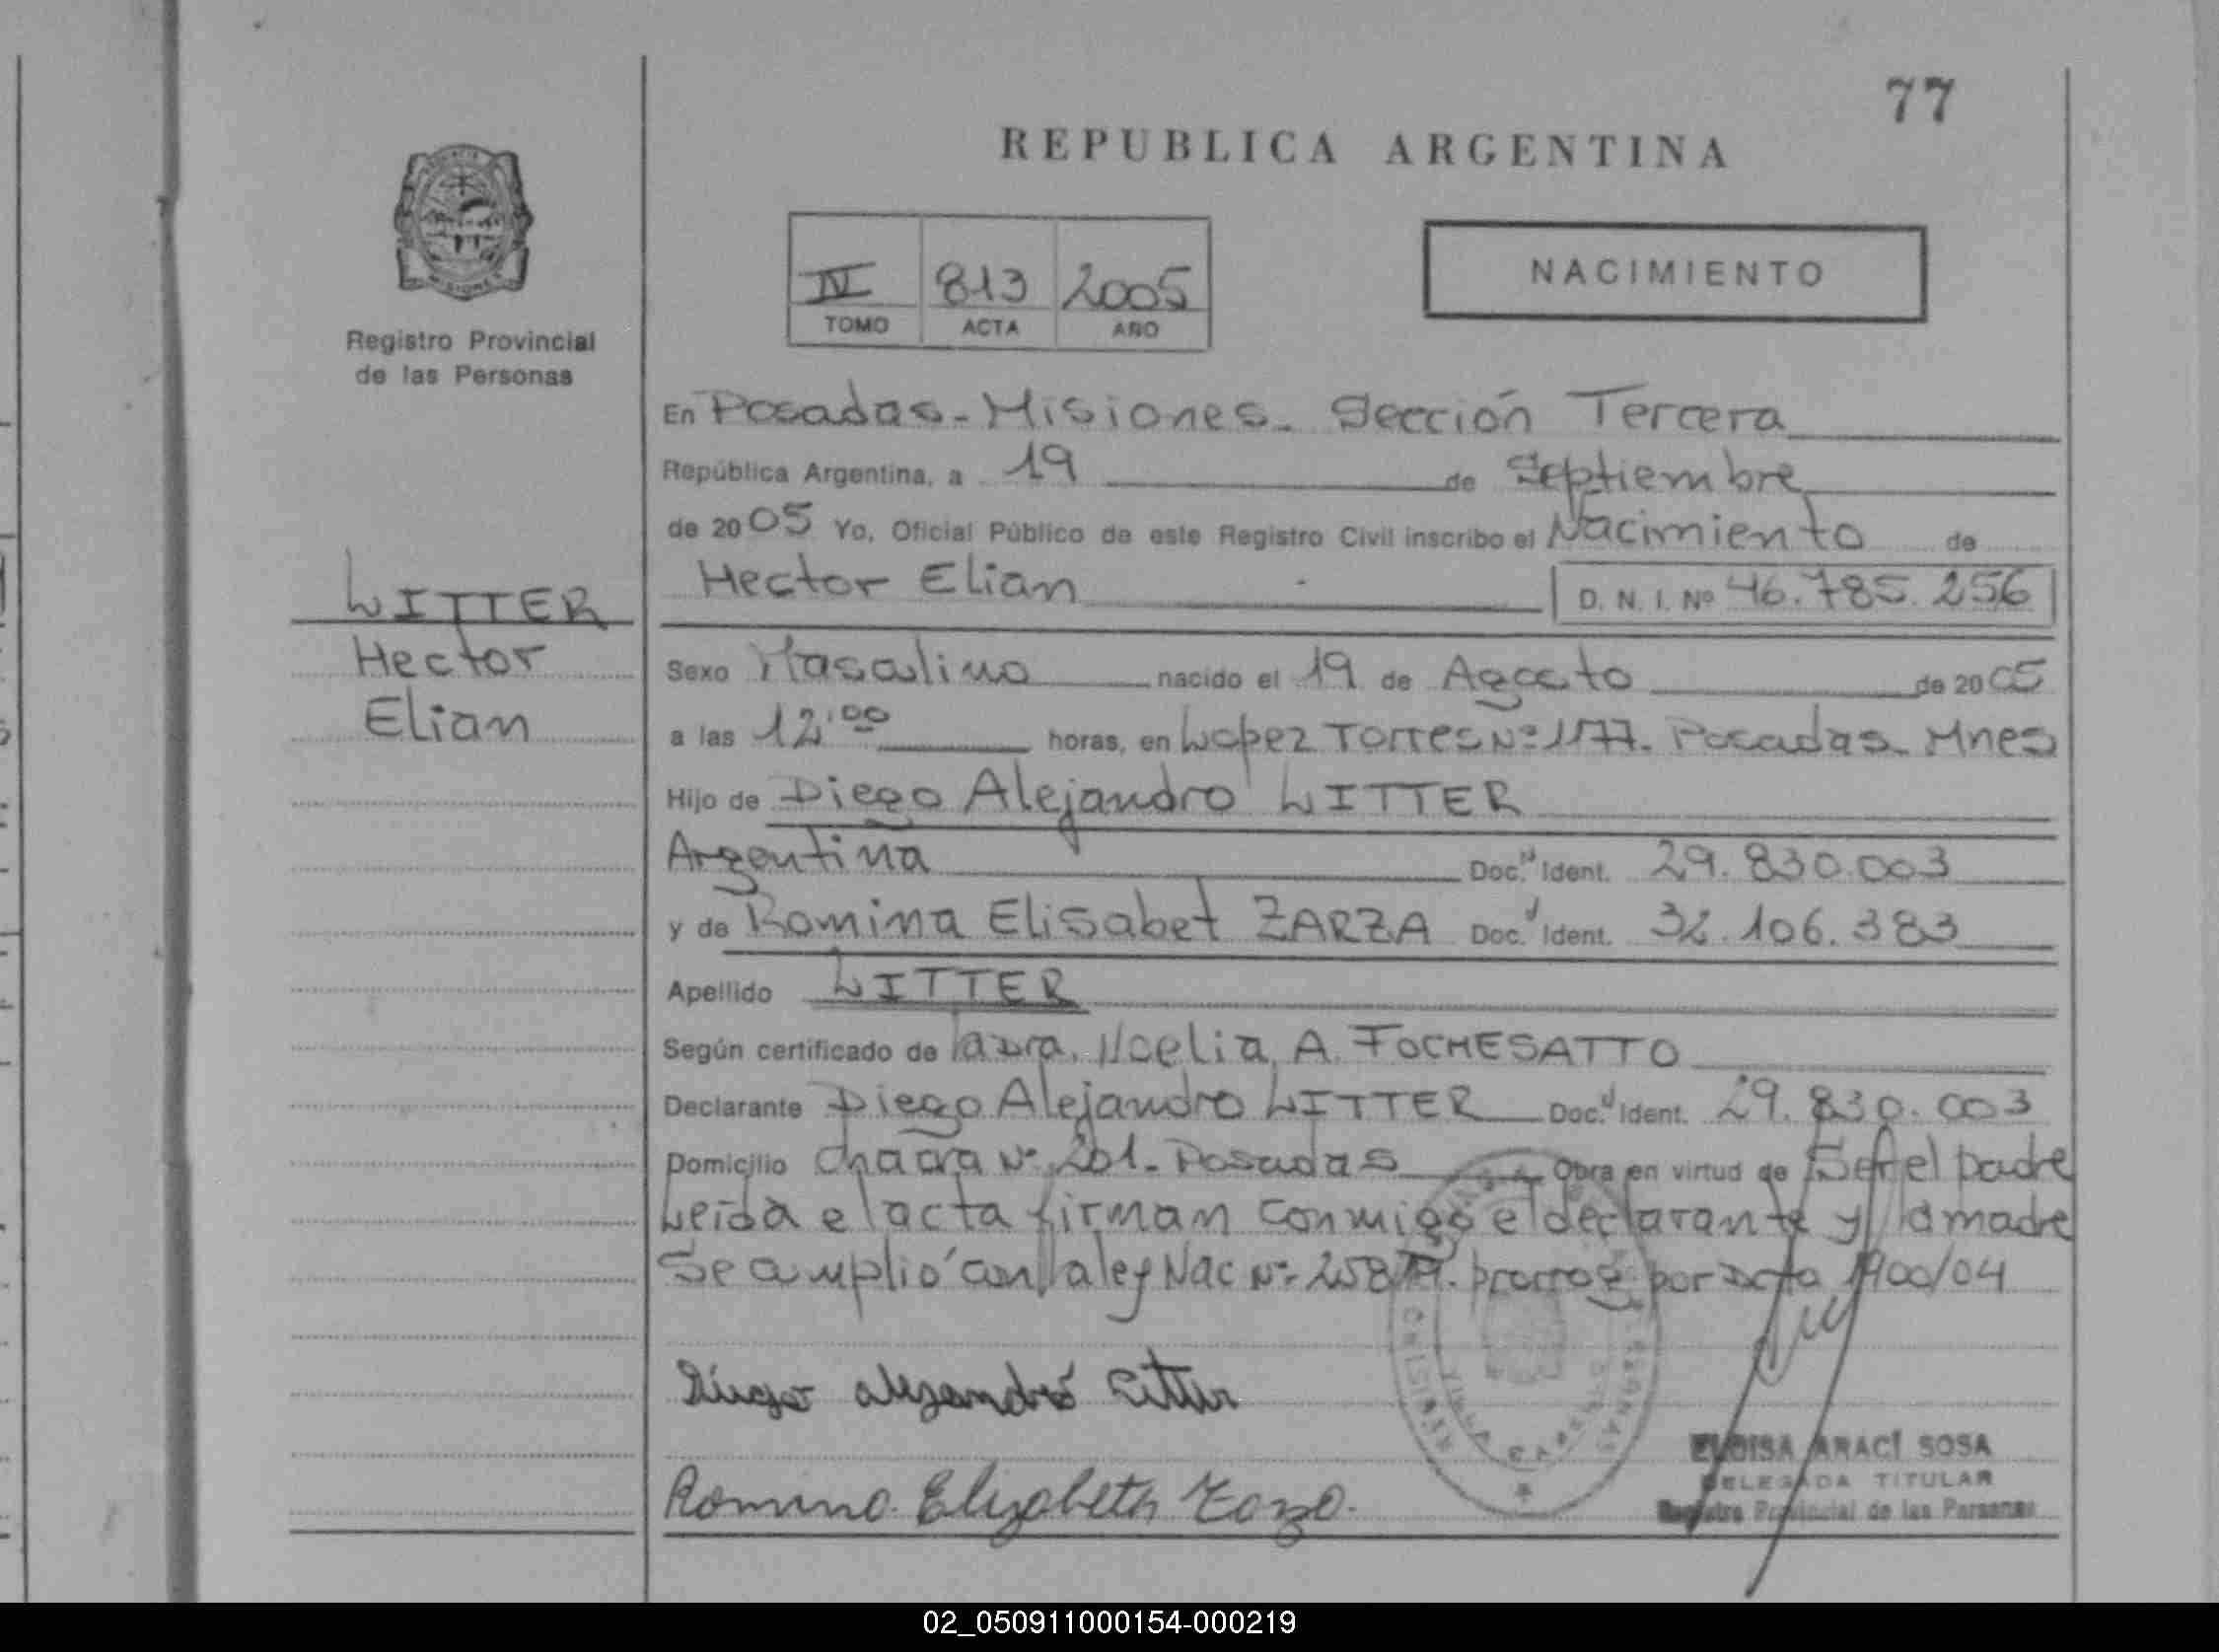 77
REPUBLICA ARGENTINA
IV 813 2005
TOMO ACTA AÑO
NACIMIENTO
Registro Provincial
de las Personas
LITTER
Hector
Elian
En Posadas - Misiones - Sección Tercera
República Argentina, a 19 de Septiembre
de 2005 Yo, Oficial Público de este Registro Civil inscribo el Nacimiento de
Hector Elian D. N. I. Nº 46.785.256
Sexo Masculino nacido el 19 de Agosto de 2005
a las 12:00 horas, en Lopez Torres Nº 1177. Posadas - Mnes
Hijo de Diego Alejandro LITTER
Argentina Doc. Ident. 29.830.003
y de Romina Elisabet ZARZA Doc. Ident. 32.106.383
Apellido LITTER
Según certificado de la Dra. Noelia A. FOCHESATTO
Declarante Diego Alejandro LITTER Doc. Ident. 29.830.003
Domicilio Chacra Nº 201 - Posadas Obra en virtud de Ser el padre
Leida el acta firman conmigo el declarante y la madre
Se amplió con la ley Nac Nº prorrog por Dcto 1900/04
Diego Alejandro Litter
Romina Elizabeth Zarza.
ELOISA ARACÍ SOSA
DELEGADA TITULAR
Registro Provincial de las Personas
02_050911000154-000219